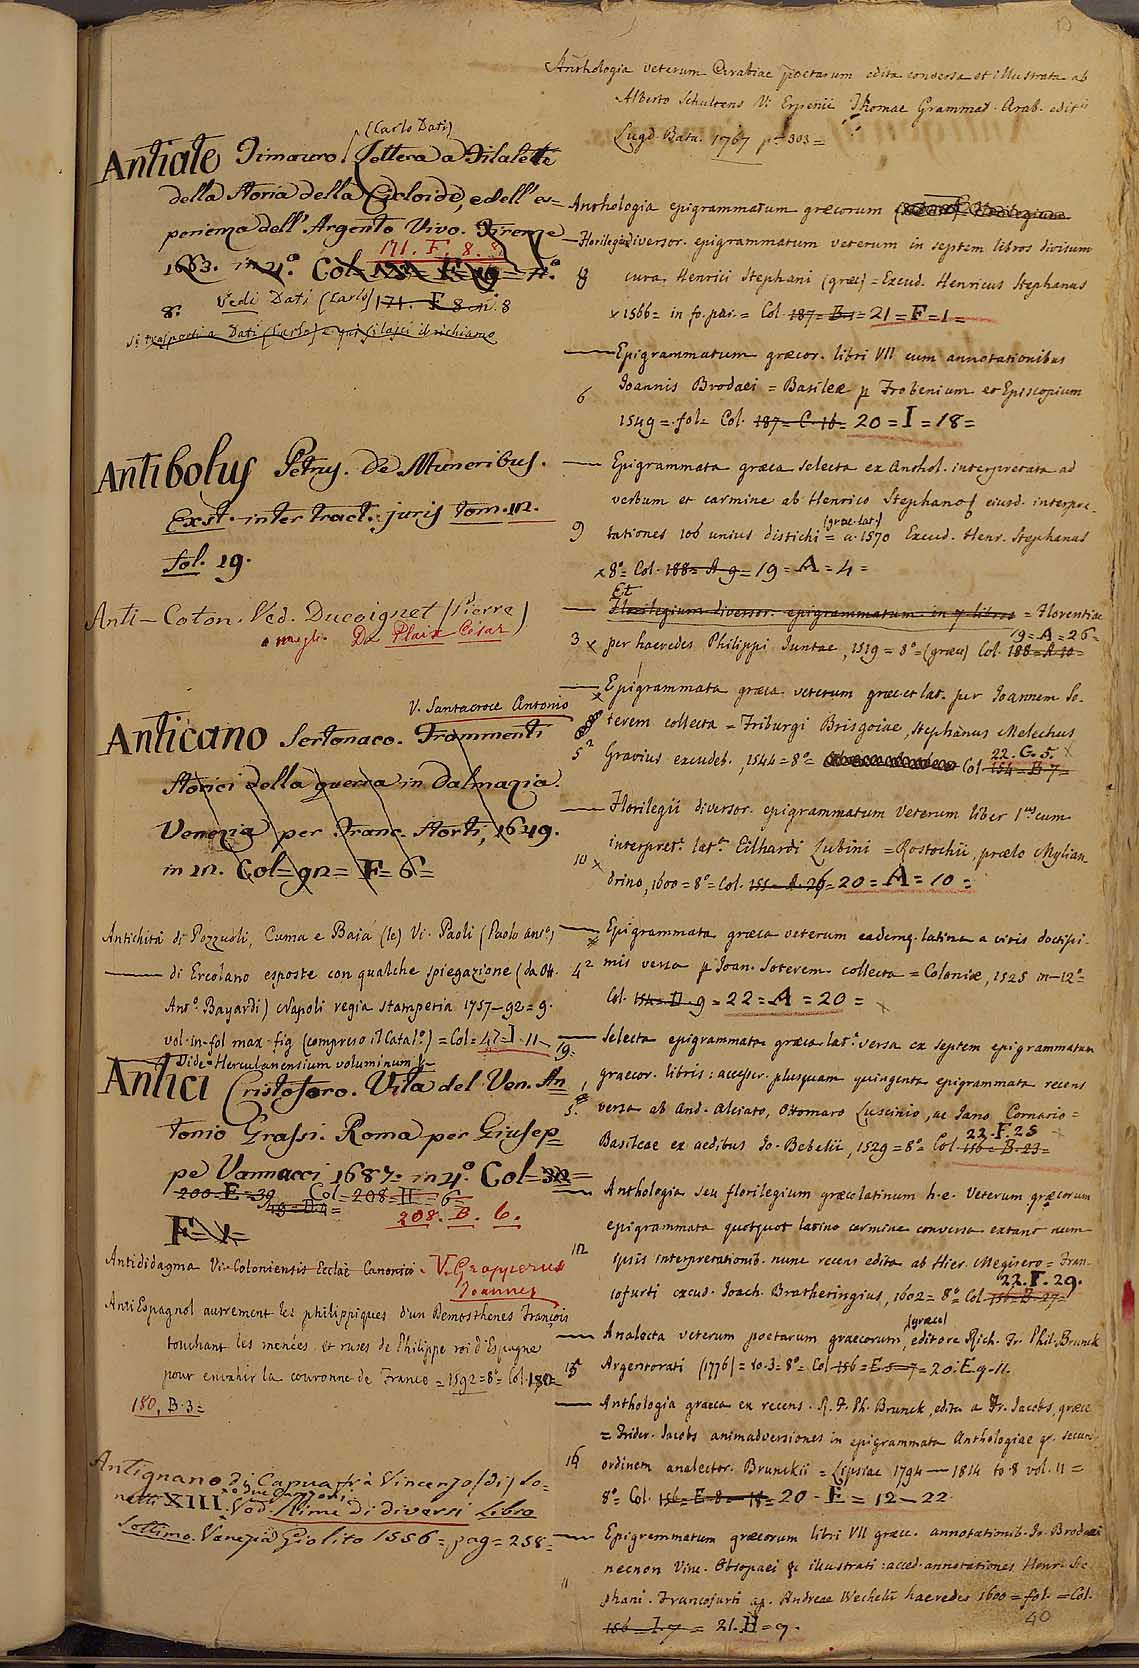 (Carlo Dati)
Antiate Timauro. Lettera a Filalete
della Storia della Cicloide, e dell' es=
perienza dell' Argento Vivo. Firenze
171. F. 8. 8
1663. in 4.º Col. F = nº
8. Vedi Dati (Carlo) 171. F 8 nº. 8
si trasporti a Dati (Carlo) e qui si lasci il richiamo
Antibolus Petrus. De Muneribus.
Exst. inter tract. juris tom. 12.
fol. 19.
Anti-Coton. Ved. Ducoignet (Pierre)
meglio Du Plaix César
V. Santacroce Antonio
Anticano Sertonaco. Frammenti
Storici della guerra in Dalmazia.
Venezia per Franc. Storti, 1649.
in 12. Col = 92 = F = 6 =
Antichità di Pozzuoli, Cuma e Baia (le) Vi. Paoli (Paolo antº)
di Ercolano esposte con qualche spiegazione (da Ott.
Antº. Bayardi) Napoli regia stamperia 1757-92 = 9.
vol. in-fol max. fig (compreso il Catalº) = Col = 47 = I. 11-19=
Vide Herculanensium voluminum &
Antici Cristoforo. Vita del Ven. An
tonio Grassi. Roma per Giusep=
pe Vannacci 1687 = in 4º. Col = 32 =
200 = E = 39 Col = 208 = H = 6
49 = D. 4 =
208. B. 6.
F = 1 =
Antididagma Vi. Coloniensis Ecclae Canonici. V. Gropperus
Joannes
Anti Espagnol autrement les philippiques d'un Demosthenes François
touchant les menées et ruses de Philippe roi d'Espagne
pour envahir la couronne de France = 1592 = 8º = Col. 180 =
180, B. 3 =
Antignano di Capua frà Vincenzo (di) So=
netti XIII. Ved. Rime di diversi Libro
e due Canzoni
Settimo. Venezia Giolito 1556 = pag = 258 =
Anthologia veterum Arabiae poetarum edita conversa et illustrata ab
Alberto Schultens Vi Erpenii Thomae Grammat. Arab. editis
Lugd. Bata. 1767 pª 303 =
Anthologia epigrammatum græcorum
— Florilegium diversor. epigrammatum veterum in septem libros divisum
8 cura Henrici Stephani (græc) = Excud. Henricus Stephanus
x 1566 = in fo. par. = Col. 187 = B = 21 = F = 1 =
— Epigrammatum græcor. libri VII cum annotationibus
6 Joannis Brodaei = Basileæ p Frobenium et Episcopium
1549 = fol = Col. 187 = C. 16 = 20 = I = 18 =
— Epigrammata græca selecta ex Anthol. interpretata ad
verbum et carmine ab Henrico Stephano & eiusd. interpre-
(græc-lat)
9 tationes 106 unius distichi = a. 1570 Excud. Henr. Stephanus
x 8º = Col. 188 = A 9 = 19 = A = 4 =
Et
— Florilegium diversor. epigrammatum in 7 libros = Florentiae
19 = A = 26 =
3 x per haeredes Philippi Juntae, 1519 = 8º = (græce) Col. 188 = A 10 =
— Epigrammata græca veterum græc. et lat. per Joannem So-
x terem collecta = Friburgi Brisgoiae, Stephanus Melechus
5² Gravius excudeb., 1544 = 8º = Col. 154 = B. 7 =
22. G. 5.
— Florilegii diversor. epigrammatum veterum liber 1us cum
interpret. latª. Eilhardi Lubini = Rostochii, prælo Mylian
10 x drino, 1600 = 8º = Col. 155 = A. 26 = 20 = A = 10 =
— Epigrammata græca veterum eademq. latina a viris doctissi-
4² mis versa p Joan. Soterem collecta = Coloniæ, 1525 in-12º =
Col. 154 = D 9 = 22 = A = 20 =
— Selecta epigrammata græca latª. versa ex septem epigrammatum
graecor. libris: accesser. plusquam quingenta epigrammata recens
5. versa ab And. Alciato, Ottomaro Luscinio, ac Jano Cornario =
22. F. 28
Basileae ex aedibus Jo. Bebelii, 1529 = 8º = Col. 156 = B. 23 =
— Anthologia seu florilegium græcolatinum h.e. Veterum græcorum
epigrammata quotquot latino carmine conversa extant num
12 ipsis interpretationib. nunc recens edita ab Hier. Megisero = Fran-
22. F. 29.
cofurti excud. Joach. Bratheringius, 1602 = 8º = Col. 156 = B. 27 =
(græce)
— Analecta veterum poetarum graecorum, editore Rich. Fr. Phil. Brunck
15 Argentorati (1776) = to. 3 = 8º = Col. 156 = E. 5-7 = 20. E. 9-11.
— Anthologia graeca ex recens. R. F. Ph. Brunck, edita a Fr. Jacobs, græce
= Frider. Jacobs animadversiones in epigrammata Anthologiae gr. secun.
16 ordinem analector. Brunckii = Lipsiae 1794 — 1814 to 8 vol. 11 =
8º = Col. 156 = E-8-18 = 20 - E = 12-22.
— Epigrammatum græcorum libri VII græc. annotationib. Jo. Brodaei
necnon Vinc. Obsopaei &c illustrati: acced. annotationes Henr. Ste
11 phani. Francofurti ap. Andreae Wecheli haeredes 1600 = fol. = Col.
156 = I. 7 = 21. H = 9.
40